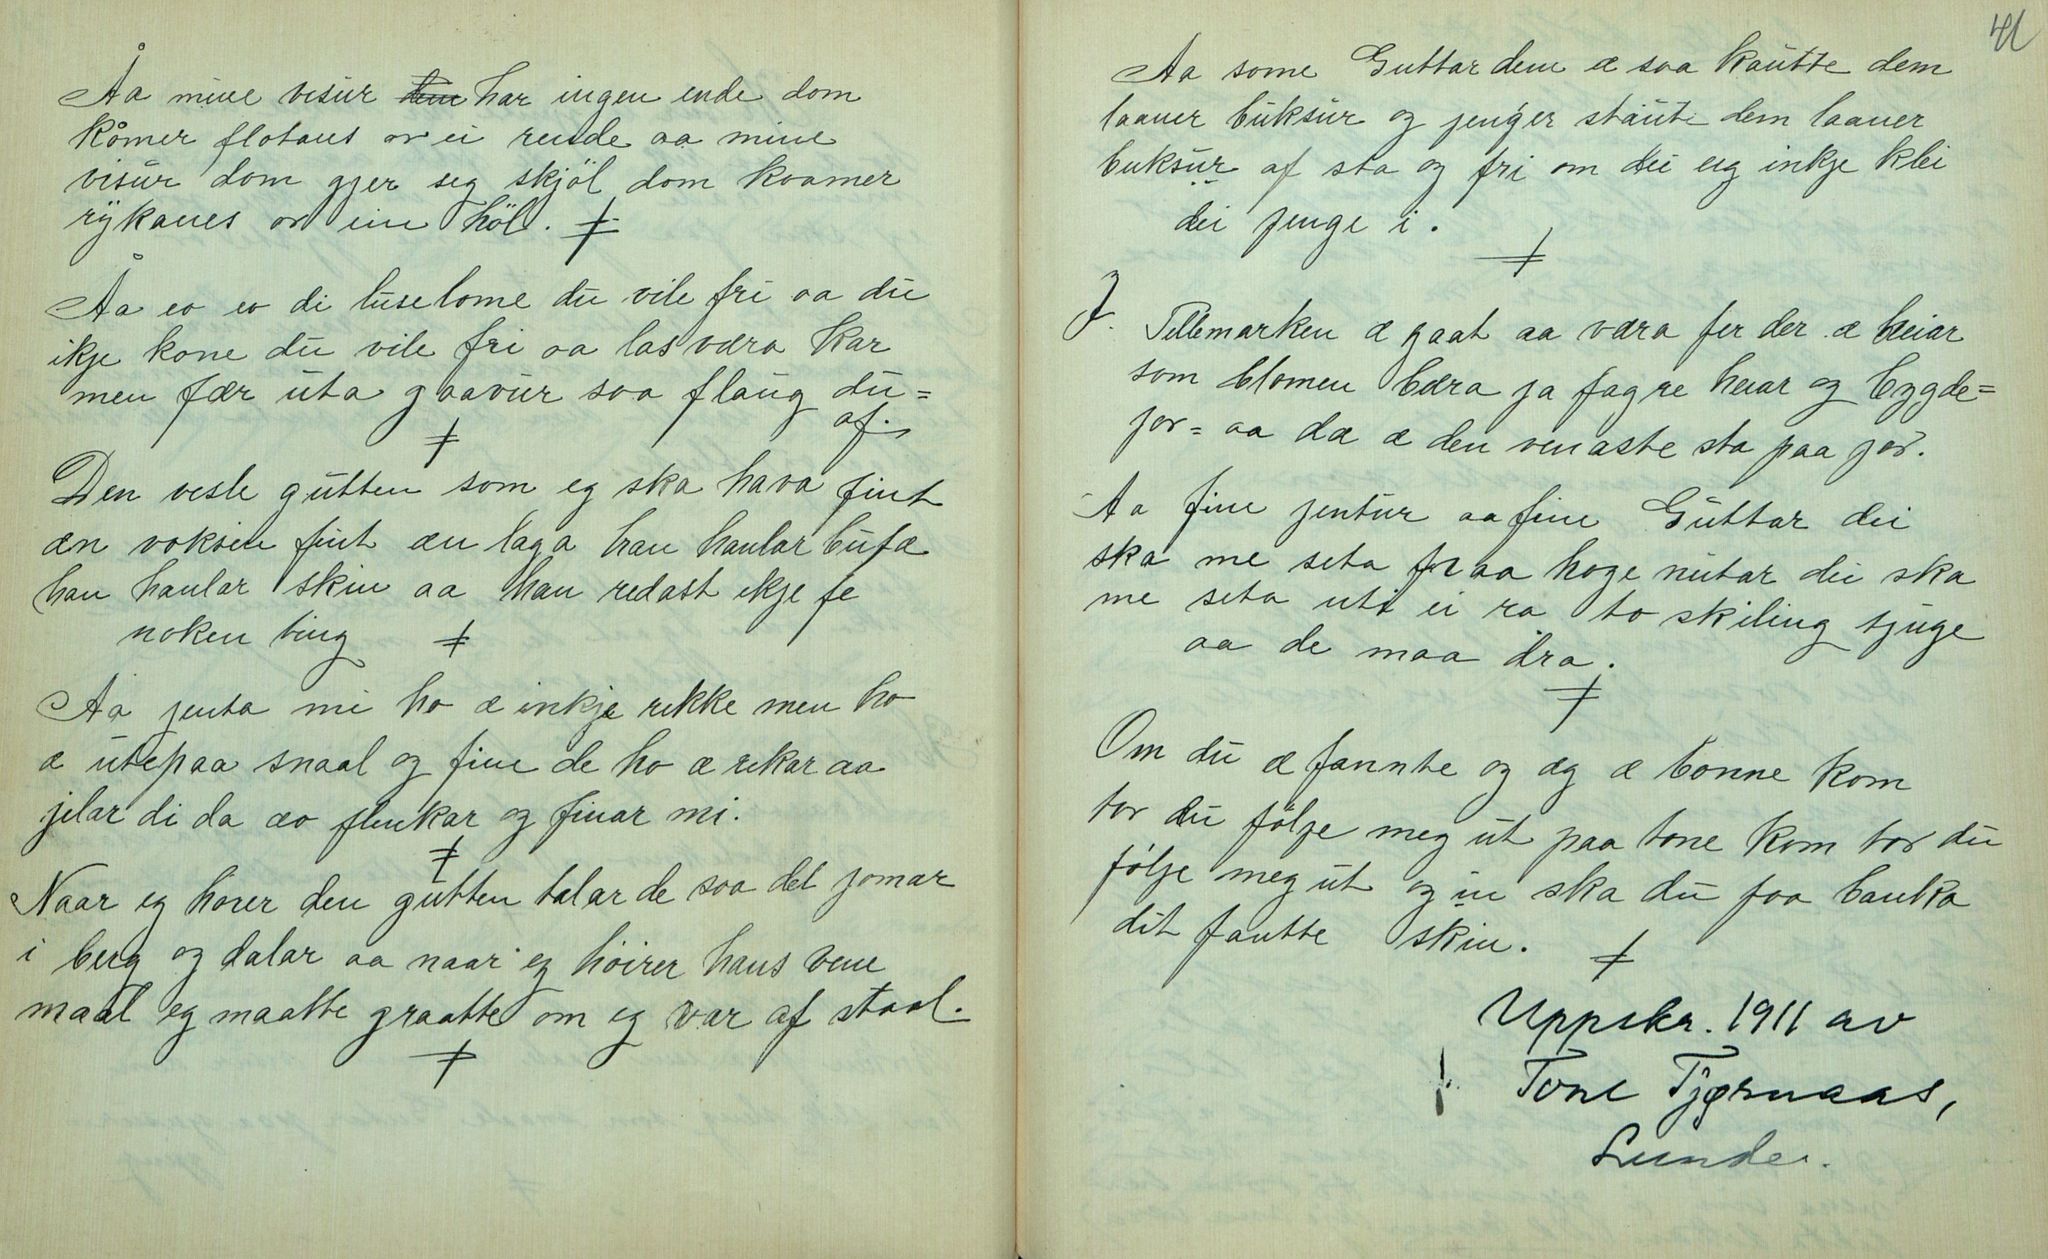 Åa mine visur dem har ingen ende dom
kåmer flotans or ei rende aa mine
visur dom gjer seg skjöl dom koamer
rykanes or ein höl.
Åa eo eo di luselome du vile fri aa du
ikje kone du vile fri aa las væra kar
men fær uta gaavur saa flaug du=
af.
Den vesle gutten som eg ska hava fint
æn voksin fint æn laga han hanlar bufæ
han hanlar skin aa han redast ikje fe
noken ting
Aa jenta mi ho æ inkje rikke men ho
æ utepaa snaal og fine de ho æ rekar aa
jelar di da æo flinkar og finar mi.
Naar eg hörer den gutten talar de saa det jomar
i berg og dalar aa naar eg höirer hans vene
maal eg maatte graatte om eg var af staal.
41
Aa some Guttar dem æ saa kautte dem
laaner buksur og jenger staut dem laaner
buksur af sta og fri om dei eig inkje klei
dei jenge i.
I Tellemarken æ gaat aa væra fer der æ heiar
som blomen bæra ja fagre heiar og bygde=
jor= aa dæ æ den venaste sta paa jor.
Aa fine jentur aa fine Guttar dei
ska me seta fraa hoge nutar dei ska
me seta uti ei ra to skiling tjuge
aa de maa dra.
Om du æ fannte og æg æ bonne kom
tor du följe meg ut paa tone kom tor du
följe meg ut og in ska du faa banka
dit fantte skin.
Uppskr. 1911 av
Tone Tjørnaas,
Lunde.